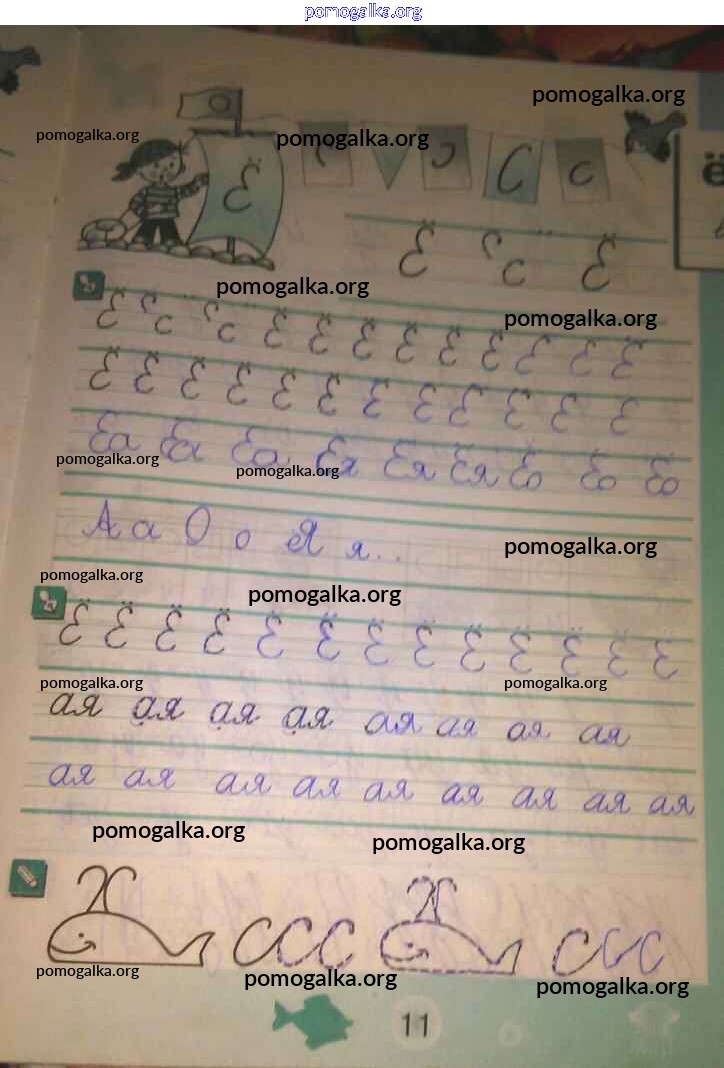 pomogalka.org
pomogalka.org
pomogalka.org pomogalka.org
Ё С с
ё
Ё Ё
pomogalka.org
pomogalka.org
Ё Ё Ё Ё Ё Ё Ё Ё Ё Ё
Ё Ё Ё Ё Ё Ё Ё Ё Ё Ё Ё Ё
Ёа Ёа Ёа Ёя Ёя Ёя Ёо Ёо Ёо
pomogalka.org pomogalka.org
А а О о Я я...
pomogalka.org
pomogalka.org
pomogalka.org
Ё Ё Ё Ё Ё Ё Ё Ё Ё Ё Ё Ё Ё
pomogalka.org pomogalka.org
ая ая ая ая ая ая ая ая
ая ая ая ая ая ая ая ая ая
pomogalka.org pomogalka.org
С С С С С С
pomogalka.org pomogalka.org pomogalka.org
11